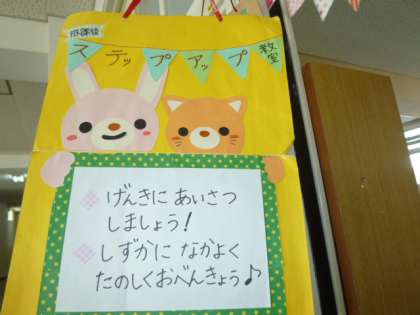 放課後
ステップアップ教室
げんきに あいさつ
しましょう!
しずかに なかよく
たのしくおべんきょう♪